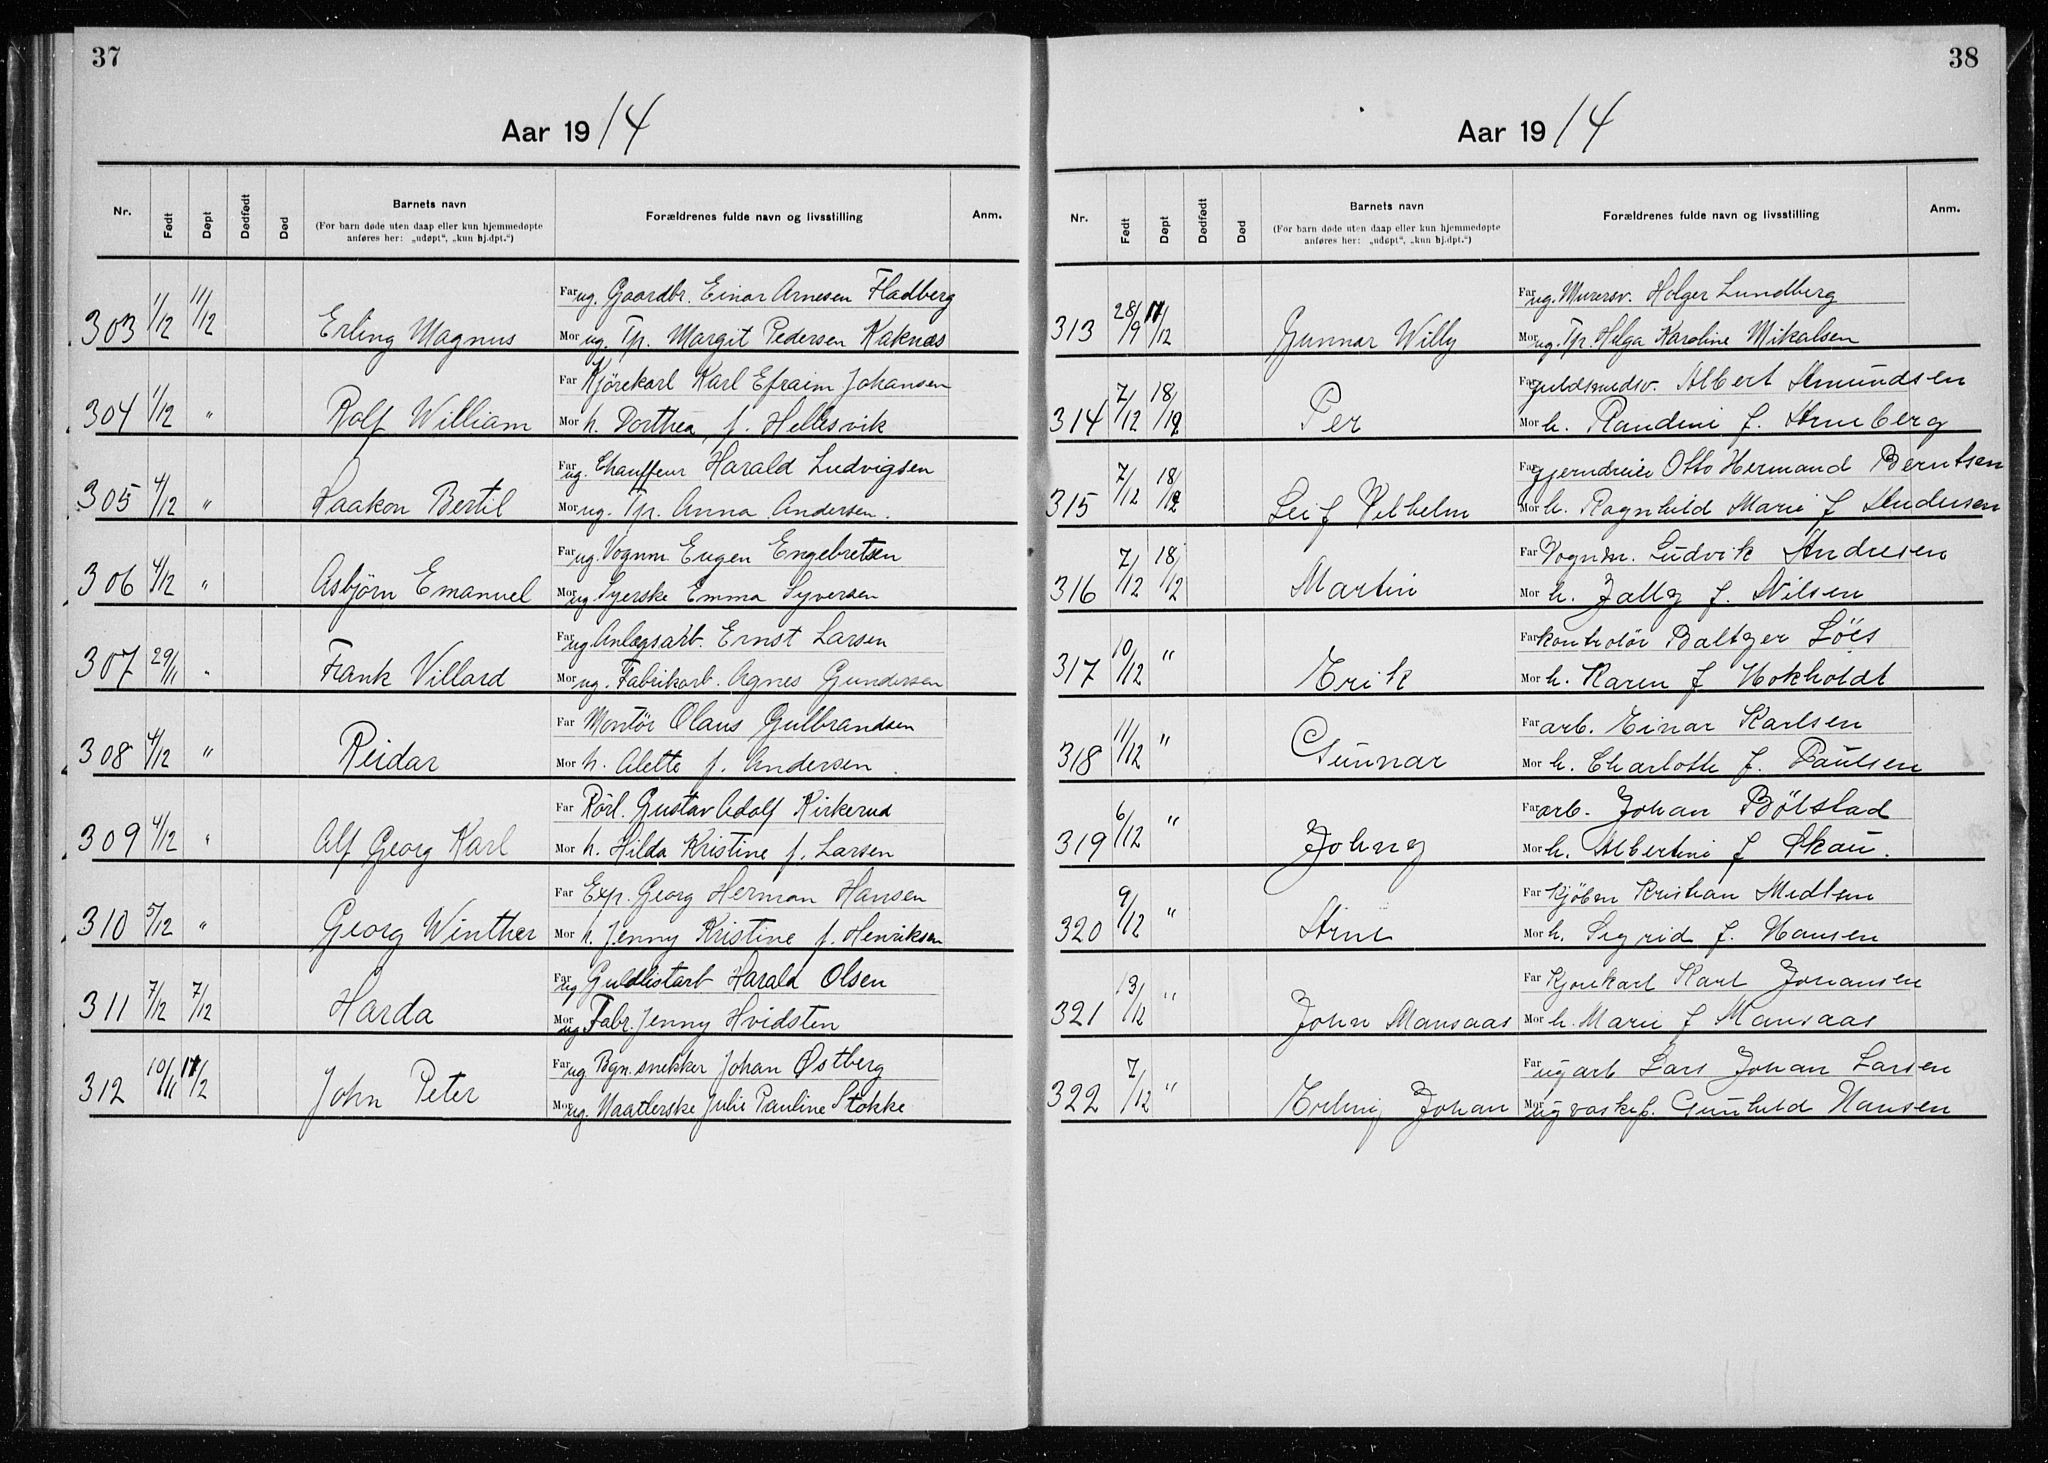 37
Aar 1914
Nr. Født Døpt Dødfødt Død Barnets navn Forældrenes fulde navn og livsstilling Anm.
(For barn døde uten daap eller kun hjemmedøpte
anføres her: „udøpt“, „kun hj.dpt.“)
Far ug. Gaardbr. Einar Arnesen Fladberg
303 1/12 11/12 Erling Magnus Mor ug. Tp. Margit Pedersen Kaknæs
Far Kjörekarl Karl Efraim Johansen
304 1/12 " Rolf William Mor h. Dorthea f. Hellesvik
Far ug. Chauffeur Harald Ludvigsen
305 4/12 " Haakon Bertil Mor ug. Tp. Anna Andersen.
Far ug. Vognm Eugen Engebretsen
306 4/12 " Asbjörn Emanuel Mor ug. Syerske Emma Syversen
Far ug Anlægsarb. Ernst Larsen
307 29/11 " Frank Villard Mor ug. Fabrikarb. Agnes Gundersen
Far Montör Olaus Gulbrandsen
308 4/12 " Reidar Mor h. Alette f. Andersen.
Far Rörl. Gustav Adolf Kirkerud
309 4/12 " Alf Georg Karl Mor h. Hilda Kristine f. Larsen
Far Exp. Georg Herman Hansen
310 5/12 " Georg Winther Mor h. Jenny Kristine f. Henriksen
Far ug Guldlistarb Harald Olsen
311 7/12 7/12 Harda Mor ug Fabr. Jenny Hvidsten
Far ug Bgn. snekker Johan Østberg
312 10/11 17/12 John Peter Mor ug. Maatlerske Julie Pauline Stokke
38
Aar 1914
Nr. Født Døpt Dødfødt Død Barnets navn Forældrenes fulde navn og livsstilling Anm.
(For barn døde uten daap eller kun hjemmedøpte
anføres her: „udøpt“, „kun hj.dpt.“)
Far ug. Murersv. Holger Lundberg
313 28/9 17/12 Gunnar Willy Mor ug. Tp. Helga Karoline Mikalsen
Far guldsmedsv. Albert Amundsen
314 7/12 18/12 Per Mor h. Randini f. Arneberg
Far jerndreier Otto Hermand Berntsen
315 7/12 18/12 Leif Vilhelm Mor h. Ragnhild Marie f Andersen
Far Vognm. Ludvik Andresen
316 7/12 18/12 Martin Mor h. Jally f. Nilsen
Far kontrolör Baltzer Löes
317 10/12 " Erik Mor h. Karen f Hokholdt
Far arb. Einar Karlsen
318 11/12 " Gunnar Mor h. Charlotte f. Paulsen
Far arb. Johan Bölstad
319 6/12 " Johny Mor h. Albertine f Skau.
Far Kjöbm Kristian Midtsen
320 9/12 " Arne Mor h. Sigrid f. Hansen
Far Kjörekarl Karl Johansen
321 13/12 " John Mansaas Mor h. Marie f Mansaas
Far ug arb Lars Johan Larsen
322 7/12 " Erling Johan Mor ug vaskef. Gunhild Hansen